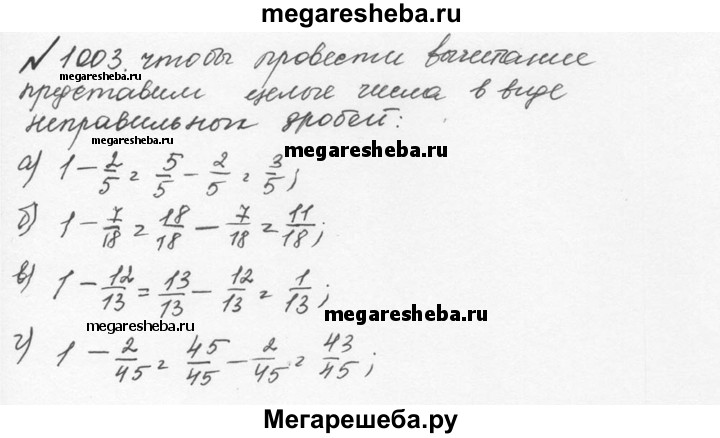 megaresheba.ru
N 1003. чтобы провести вычитание
megaresheba.ru
представим целые числа в виде
неправильных дробей:
megaresheba.ru
а) 1 - 2/5 = 5/5 - 2/5 = 3/5;
megaresheba.ru
б) 1 - 7/18 = 18/18 - 7/18 = 11/18;
в) 1 - 12/13 = 13/13 - 12/13 = 1/13;
megaresheba.ru
megaresheba.ru
г) 1 - 2/45 = 45/45 - 2/45 = 43/45;
Мегарешеба.ру